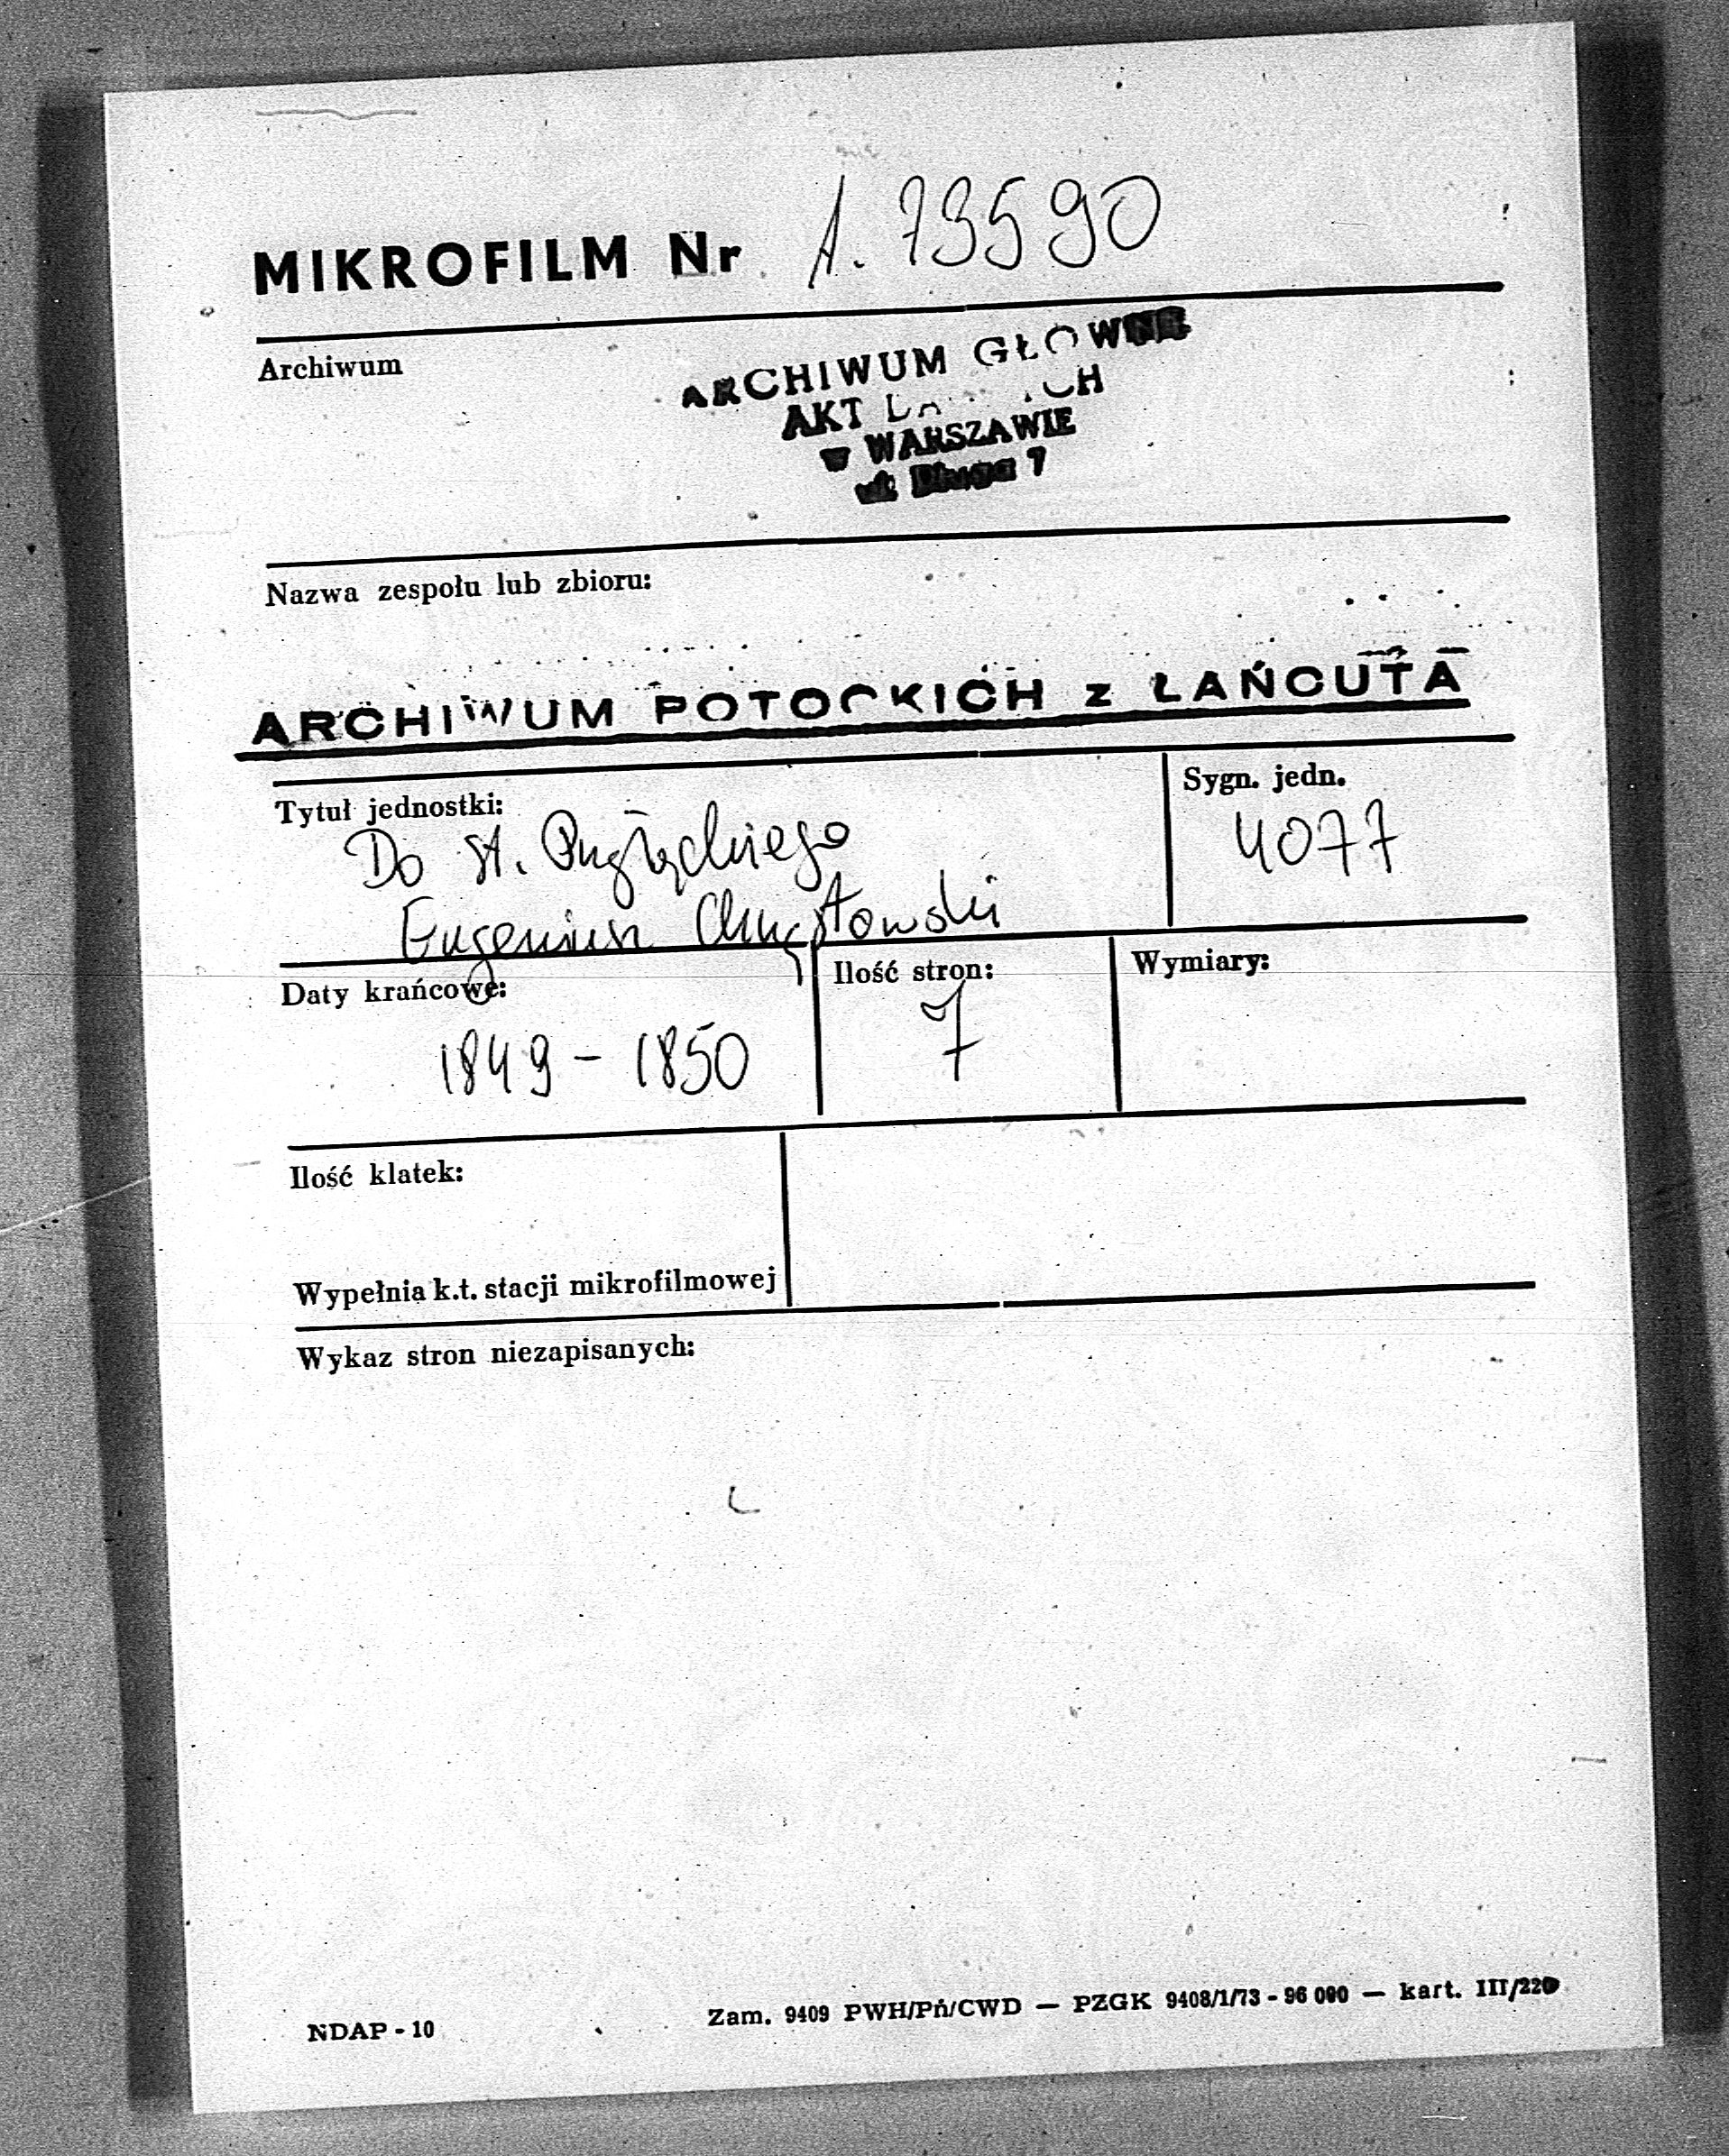 MIKROFILM Nr A. 73590
Archiwum
ARCHIWUM GŁOWNE
AKT
w WARSZAWIE
ul. Długa 7
Nazwa zespołu lub zbioru:
ARCHIWUM POTOCKICH z ŁAŃCUTA
Tytuł jednostki:
Sygn. jedn.
4077
Do St.
Eugeniusz
Daty krańcowe:
1849 - 1850
Ilość stron:
7
Wymiary:
Ilość klatek:
Wypełnia k.t. stacji mikrofilmowej
Wykaz stron niezapisanych:
NDAP - 10
Zam. 9409 PWH/Pń/CWD — PZGK 9408/1/73 - 96 000 — kart. III/220